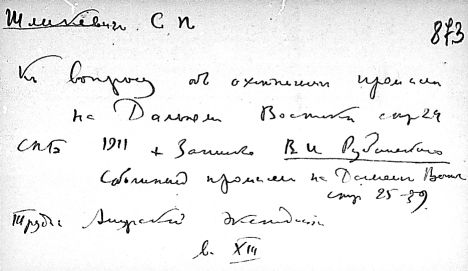 Шликевич С П
873
К вопросу об охотничьем промысле
на Дальнем Востоке стр 24
СПБ 1911 + Записка В И Рудановского
Соболиный промысел на Дальнем Вост
стр 25-39
Труды Амурской Экспедиции
в. XIII